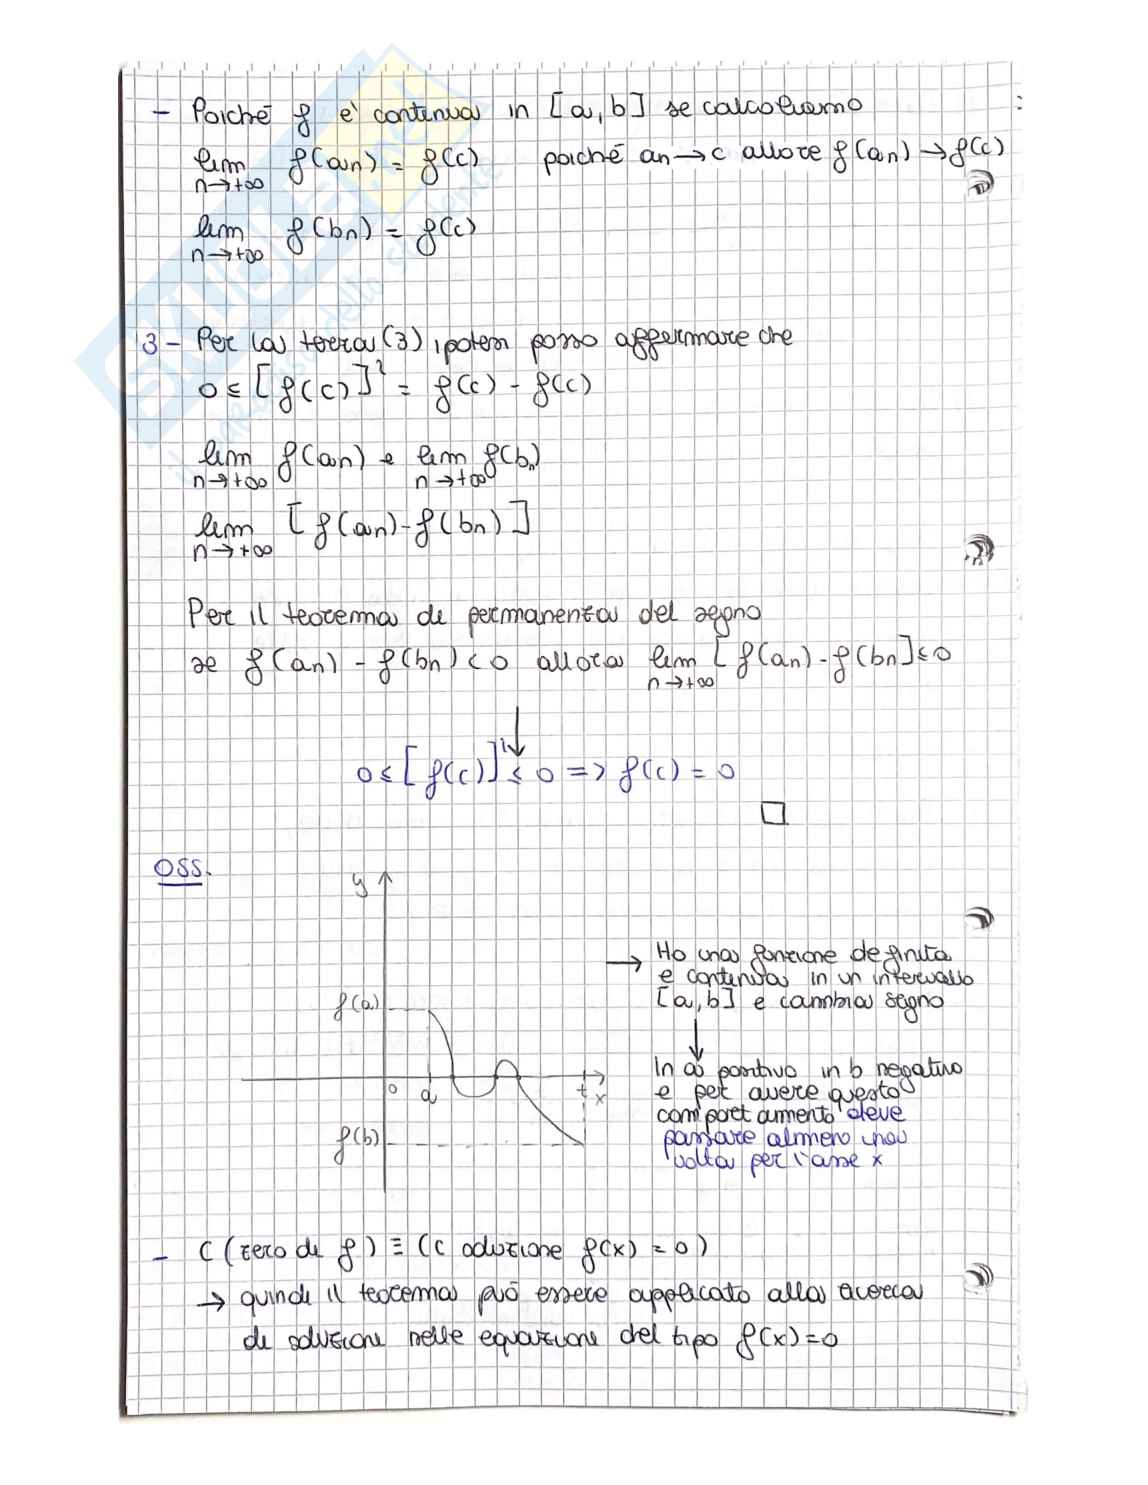 - Poiché f e' continua in [a, b] se calcoliamo
lim f(an) = f(c) poiché an → c allora f(an) → f(c)
n→+∞
lim f(bn) = f(c)
n→+∞
3 - Per la terza (3), ipotesi posso affermare che
0 ≤ [f(c)]² = f(c) - f(c)
lim f(an) e lim f(bn)
n→+∞ n→+∞
lim [f(an) - f(bn)]
n→+∞
Per il teorema di permanenza del segno
se f(an) - f(bn) < 0 allora lim [f(an) - f(bn] ≤ 0
n→+∞
↓
0 ≤ [f(c)]² ≤ 0 => f(c) = 0
□
OSS.
y
→ Ho una funzione definita
e continua in un intervallo
[a, b] e cambia segno
f(a)
↓
In a positivo in b negativo
e per avere questo
comportamento deve
passare almeno una
volta per l'asse x
0 a x
f(b)
- C (zero di f) ≡ (c soluzione f(x) = 0)
→ quindi il teorema può essere applicato alla ricerca
di soluzione nelle equazione del tipo f(x) = 0
SKUOLA.net